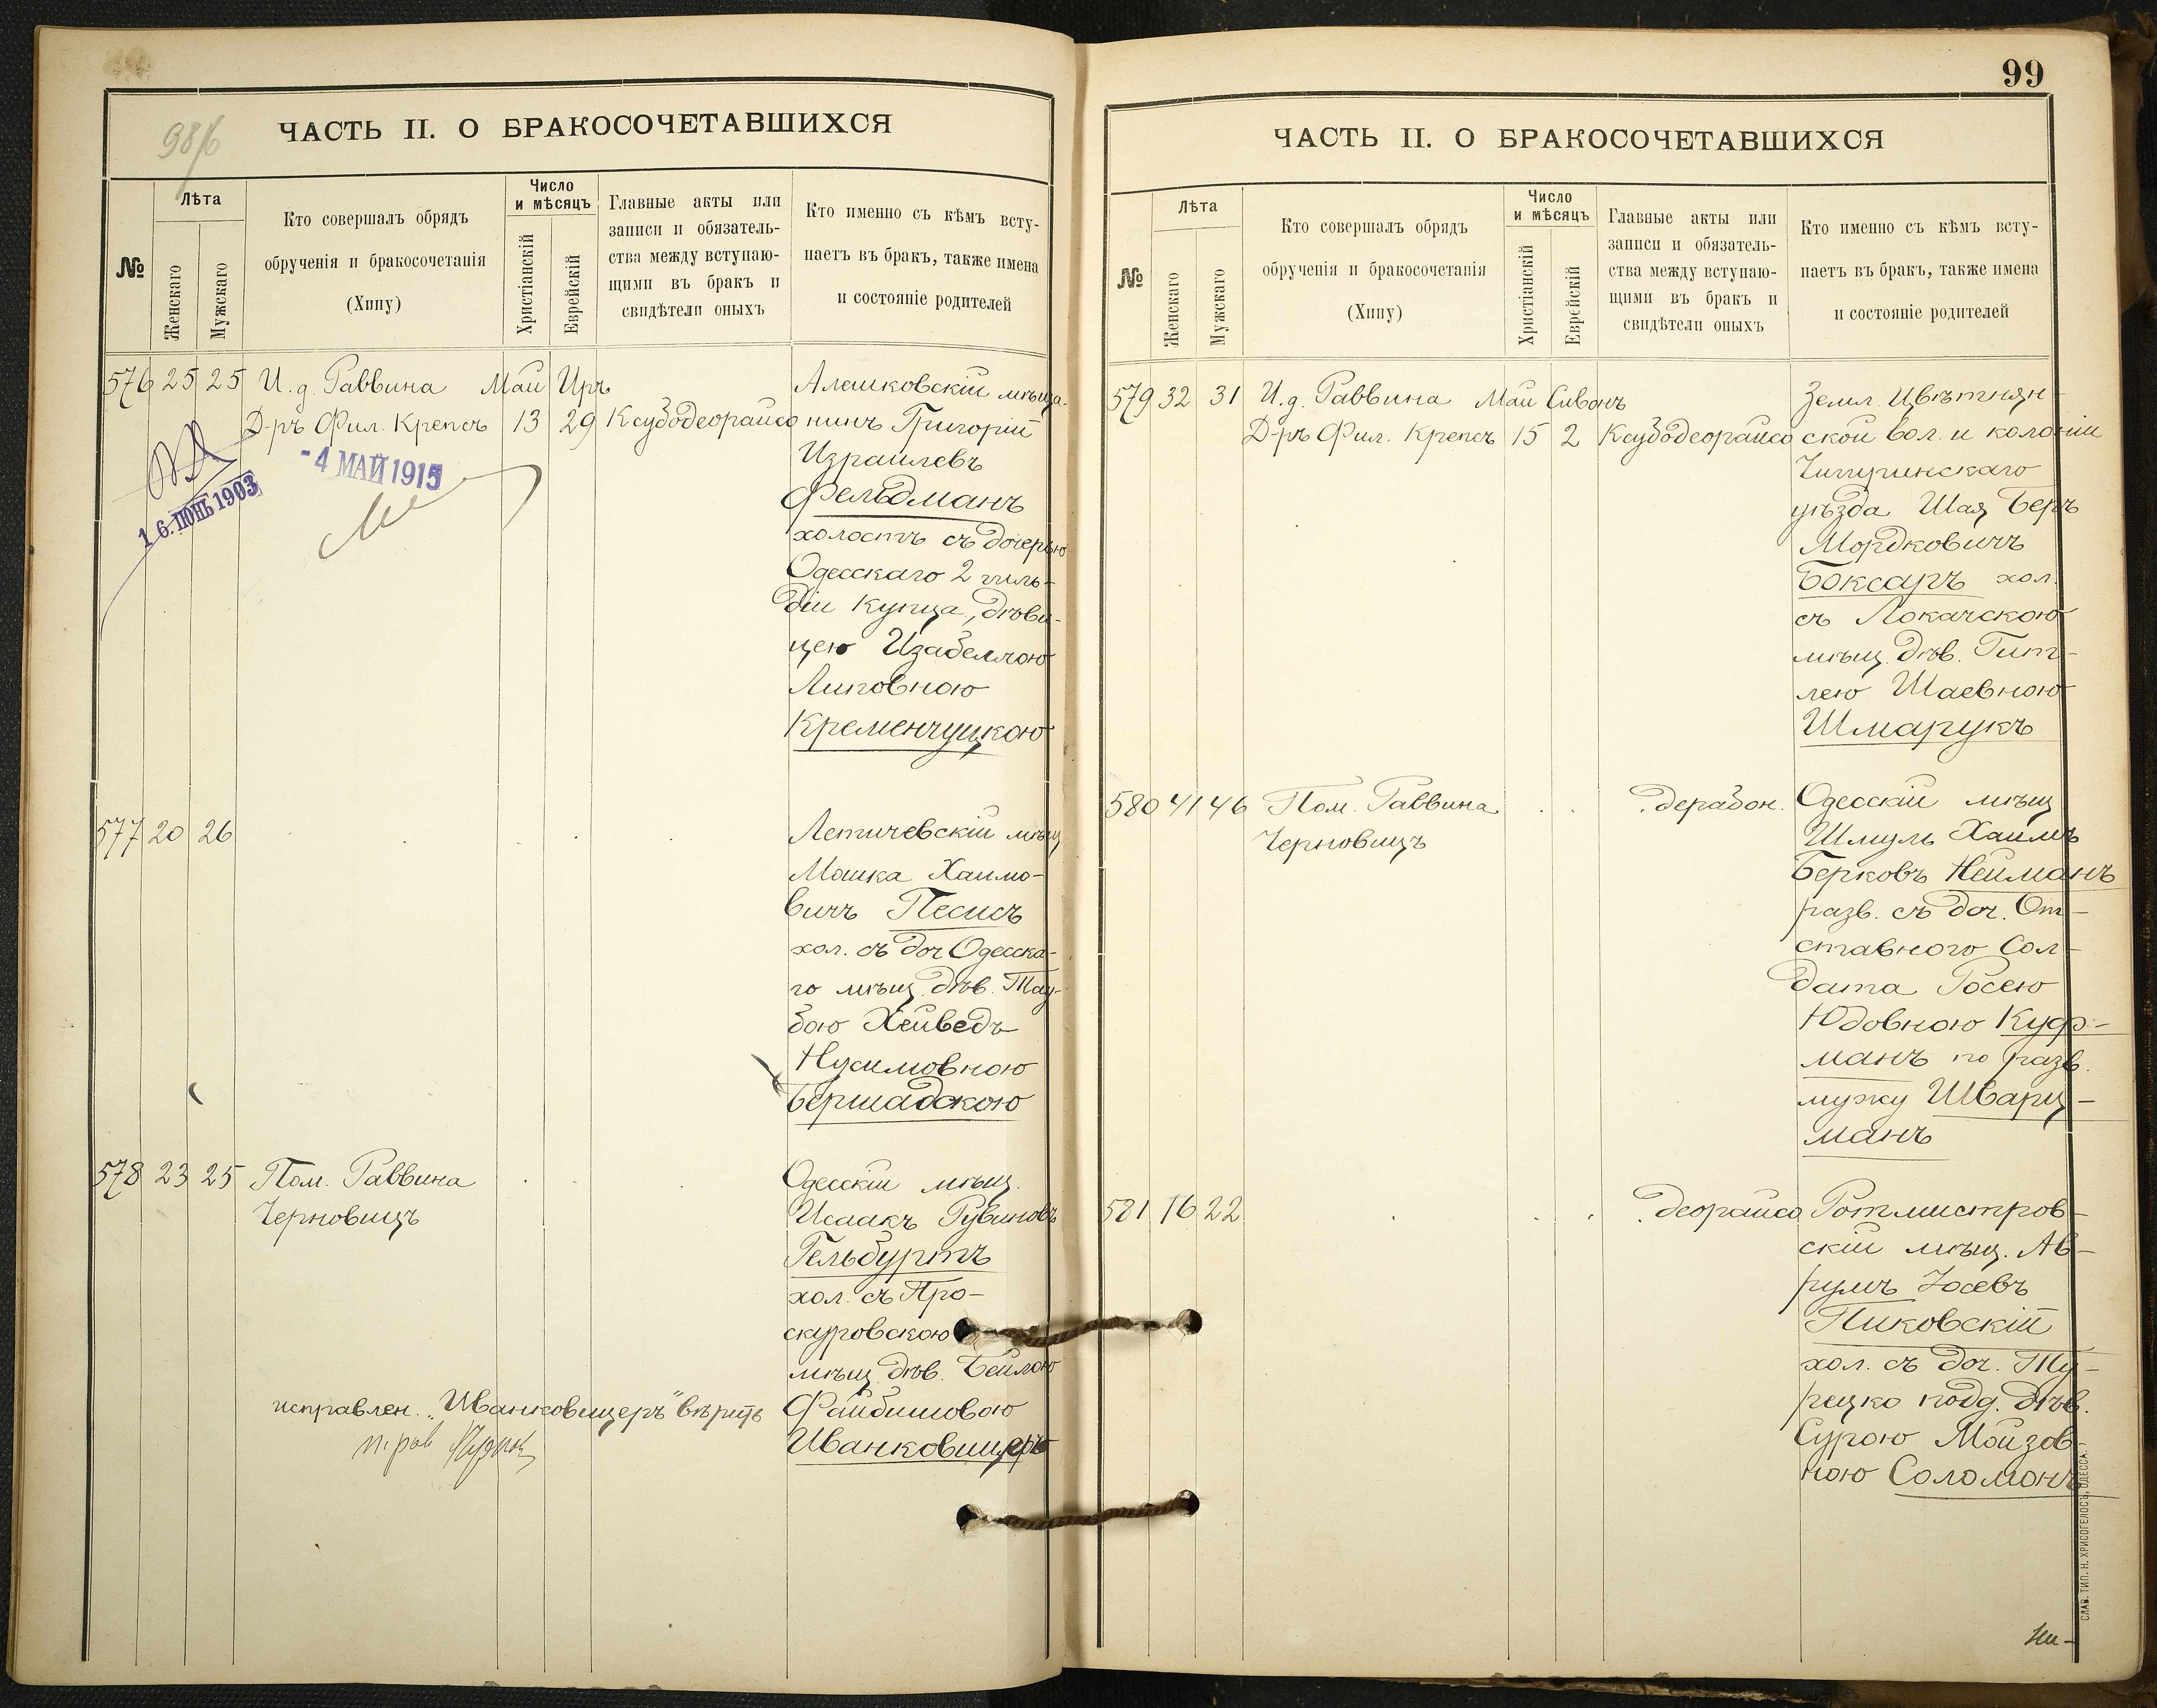 98/б
ЧАСТЬ II. О БРАКОСОЧЕТАВШИХСЯ
№
Лѣта
Женскаго
Мужскаго
Кто совершалъ обрядъ
обрученія и бракосочетанія
(Хипу)
Число
и мѣсяцъ
Христіанскій
Еврейскій
Главные акты или
записи и обязатель-
ства между вступаю-
щими въ бракъ и
свидѣтели оныхъ
Кто именно съ кѣмъ всту-
паетъ въ бракъ, также имена
и состояніе родителей
576 25 25 И. д. Раввина Май Иръ Алешковскій мѣща-
Д-ръ Фил. Крепсъ 13 29 Ксубодеорайсо нинъ Григорій
Израилевъ
Фельдманъ
холостъ съ дочерью
Одесскаго 2 гиль-
діи купца, дѣви-
цею Изабеллою
Липовною
Кременчуцкою
16. ІЮНЬ 1903
-4 МАЙ 1915
577 20 26 Летичевскій мѣщ
Мошка Хаимо-
вичъ Песисъ
хол. съ доч Одесска-
го мѣщ. дѣв. Тау-
бою Хейведъ
Нусимовною
Бершадскою
578 23 25 Пом. Раввина Одесскій мѣщ.
Черновицъ Исаакъ Рувиновъ
Гельбуртъ
хол. съ Про-
скуровскою
мѣщ. дѣв. Бейлою
исправлен. „Иванковицеръ" вѣрить Файбишовою
Иванковицеръ
99
ЧАСТЬ II. О БРАКОСОЧЕТАВШИХСЯ
№
Лѣта
Женскаго
Мужскаго
Кто совершалъ обрядъ
обрученія и бракосочетанія
(Хипу)
Число
и мѣсяцъ
Христіанскій
Еврейскій
Главные акты или
записи и обязатель-
ства между вступаю-
щими въ бракъ и
свидѣтели оныхъ
Кто именно съ кѣмъ всту-
паетъ въ бракъ, также имена
и состояніе родителей
579 32 31 И. д. Раввина Май Сивонъ Земл. Цвѣтнян-
Д-ръ Фил. Крепсъ 15 2 Ксубодеорайсо ской вол. и колоніи
Чигиринскаго
уѣзда Шая Беръ
Мордковичъ
Боксаръ хол.
съ Локачскою
мѣщ. дѣв. Гит-
лею Шаевною
Шмарукъ
580 41 46 Пом. Раввина дерабон. Одесскій мѣщ
Черновицъ Шмуль Хаимъ
Берковъ Нейманъ
разв. съ доч. От-
ставного Сол-
дата Росею
Юдовною Куф-
манъ по разв.
мужу Шварц-
манъ
581 16 22 деорайсо Ротмистров-
скій мѣщ. Ав-
румъ Іосевъ
Пиковскій
хол. съ доч. Ту-
рецко подд. дѣв.
Сурою Мойзов-
ною Соломонъ
СЛАВ. ТИП. Н. ХРИСОГЕЛОСЪ, ОДЕССА.